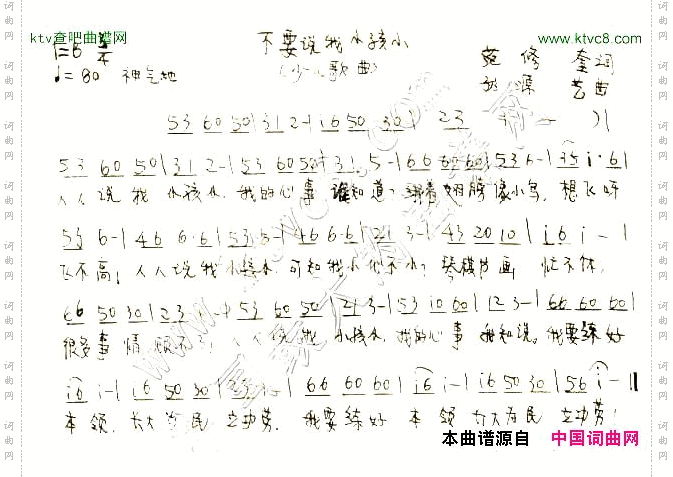 ktv查吧曲谱网
www.ktvc8.com
不要说我小孩小
(少儿歌曲)
♩= 80 神气地
范修奎词
源艺曲
53 60 50 | 31 2- | i6 50 30 | 23
53 60 50 | 31 2- | 53 60 50 | 31 5- | 66 60 60 | 53 6- | 35 i· 6 |
人人说我小孩小,我的心事谁知道?绑着翅膀像小鸟,想飞呀
53 6- | 46 6·6 | 53 5- | 46 6·6 | 21 3- | 43 20 10 | i6 i- |
飞不高;人人说我小孩小,可知我小心不小?琴棋书画忙不休,
66 50 30 | 23 | 53 60 50 | 21 3- | 53 i0 60 | 23- | 66 60 60 |
很多事情烦不了;人人说我小孩小,我的心事我知说。我要练好
i6 i- | i6 50 30 | | 66 60 60 | i6 i- | i6 50 30 | 56 i- ‖
本领,长大为民立功劳。我要练好本领长大为民立功劳!
本曲谱源自 中国词曲网
词曲网